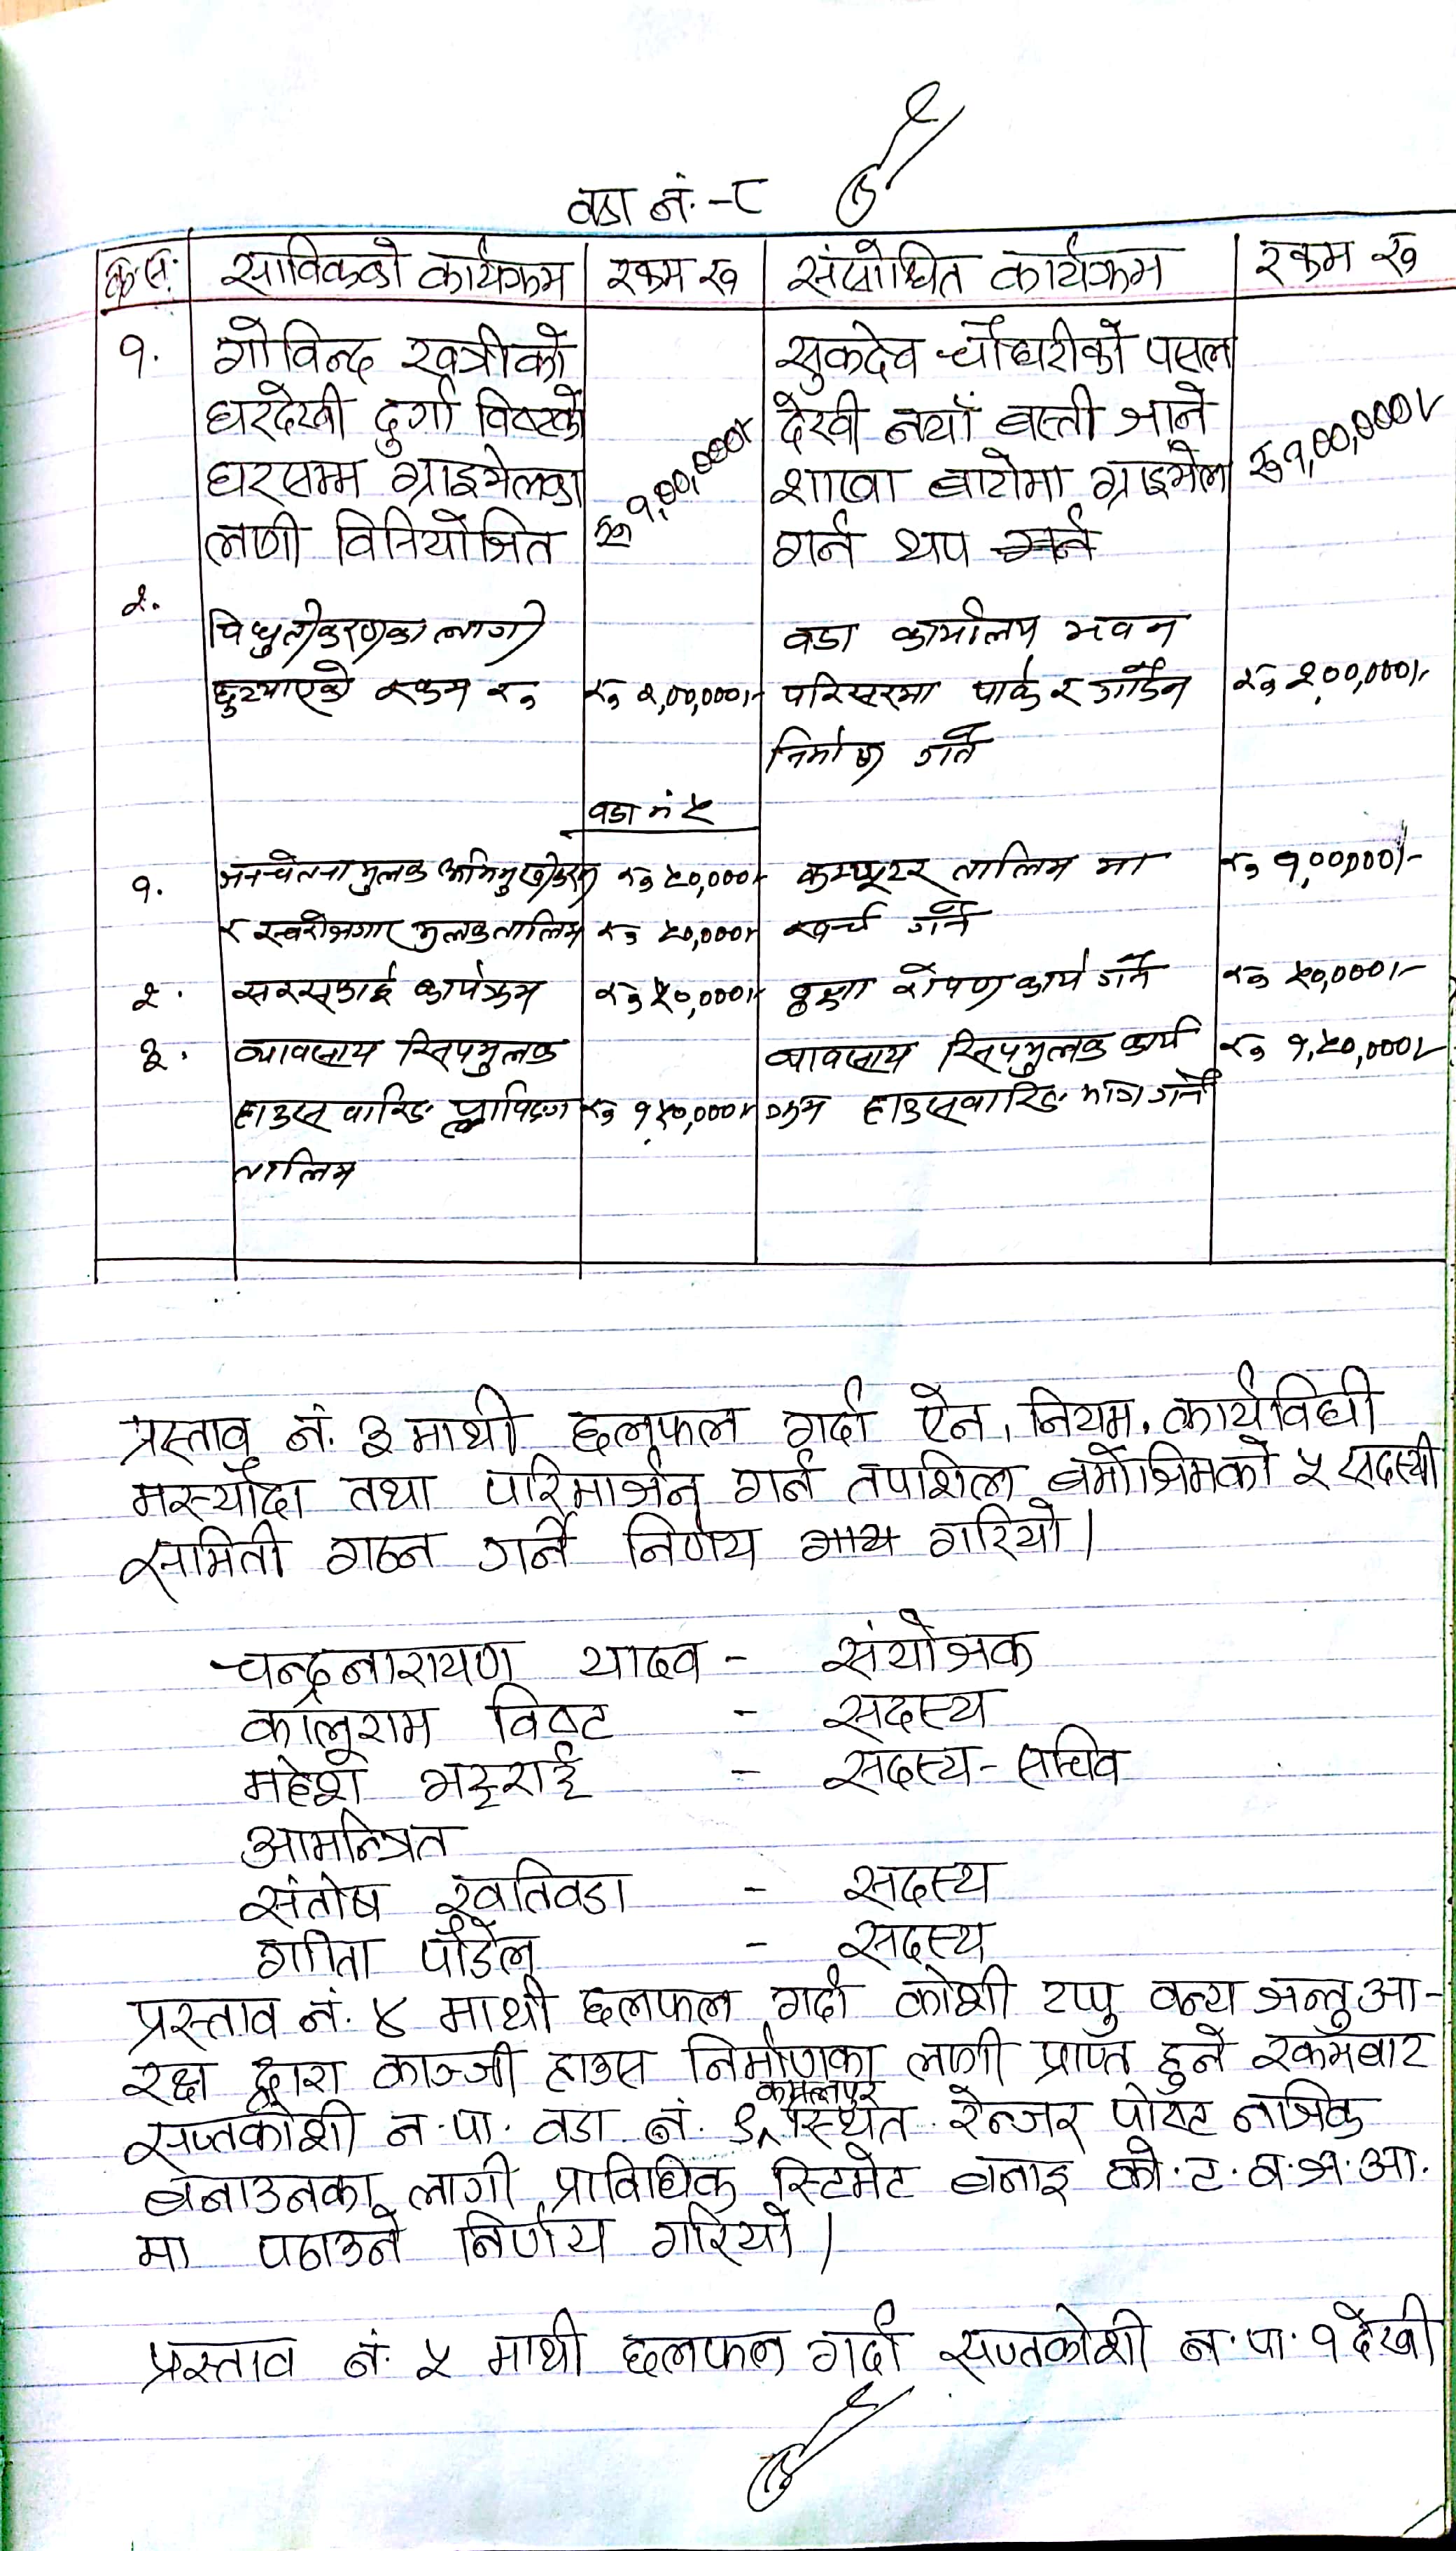 वडा नं.-८
क्र.सं. साविकको कार्यक्रम रकम रु संसोधित कार्यक्रम रकम रु
१. गोविन्द खत्रीको सुकदेव चौधरीको पसल
घरदेखी दुर्गा विष्टको देखी नयाँ बस्ती जाने
घरसम्म ग्राइभेलका रु १,००,०००।- शाखा बाटोमा ग्राइभेल रु १,००,०००।-
लागी विनियोजित गर्न थप गर्न
२.
विधुतीकरणका लागी वडा कार्यालय भवन
छुट्याएको रकम रु रु २,००,०००।- परिसरमा पार्क र गार्डेन रु २,००,०००।-
निर्माण गर्ने
वडा नं ५
१. जनचेतना मुलक अभिमुखीकरण रु ५०,०००।- कम्प्यूटर तालिम मा रु १,००,०००।-
र स्वरोजगार मुलक तालिम रु ५०,०००।- खर्च गर्ने
२. सरसफाई कार्यक्रम रु ५०,०००।- वृक्षा रोपण कार्य गर्ने रु ५०,०००।-
३. व्यावसाय सिपमुलक व्यावसाय सिपमुलक कार्य रु १,५०,०००।-
हाउस वारिङ प्लम्विङग रु १,५०,०००।- क्रम हाउसवारिङ गर्ने
तालिम
प्रस्ताव नं. ३ माथी छलफल गर्दा ऐन, नियम, कार्यविधी
मस्यौदा तथा परिमार्जन गर्न तपशिल बमोजिमको ५ सदस्यी
समिती गठन गर्ने निर्णय गरियो।
चन्द्रनारायण यादव - संयोजक
कालुराम विष्ट - सदस्य
महेश भट्टराई - सदस्य-सचिव
आमन्त्रित
संतोष खतिवडा - सदस्य
गीता पौडेल - सदस्य
प्रस्ताव नं. ४ माथी छलफल गर्दा कोशी टापु वन्य जन्तु आ-
रक्ष द्वारा काञ्जी हाउस निर्माणका लागी प्राप्त हुने रकमबाट
कमलपुर
सप्तकोशी न.पा. वडा नं. ९ स्थित रेन्जर पोष्ट नजिक
बनाउनका लागी प्राविधिक स्टिमेट बनाइ को.ट.व.ज.आ.
मा पठाउने निर्णय गरियो।
प्रस्ताव नं. ५ माथी छलफल गर्दा सप्तकोशी न.पा. १ देखी